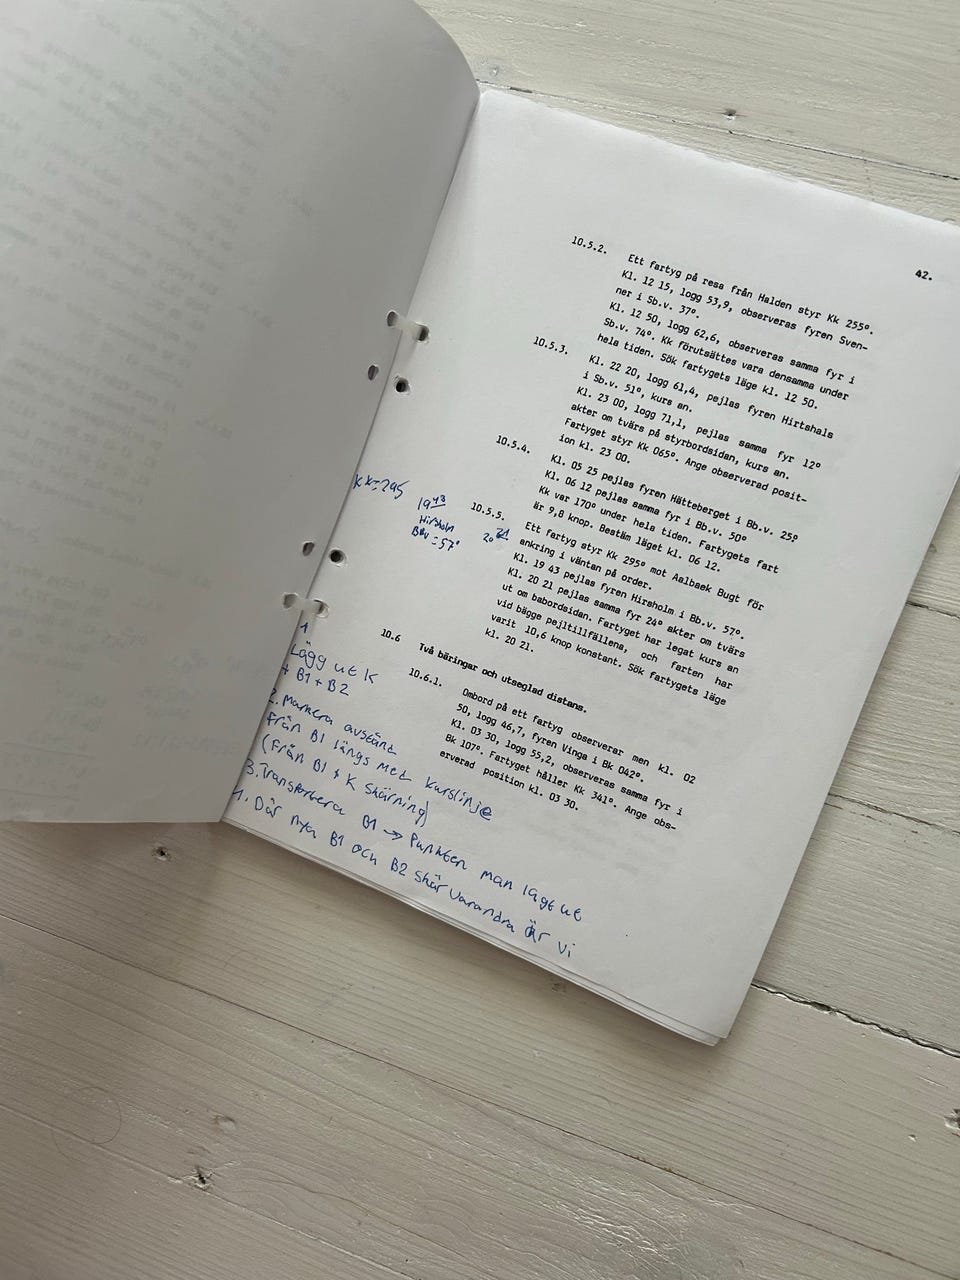 42.
10.5.2. Ett fartyg på resa från Halden styr Kk 255°.
Kl. 12 15, logg 53,9, observeras fyren Sven-
ner i Sb.v. 37°.
Kl. 12 50, logg 62,6, observeras samma fyr i
Sb.v. 74°. Kk förutsättes vara densamma under
hela tiden. Sök fartygets läge kl. 12 50.
10.5.3. Kl. 22 20, logg 61,4, pejlas fyren Hirtshals
i Sb.v. 51°, kurs an.
Kl. 23 00, logg 71,1, pejlas samma fyr 12°
akter om tvärs på styrbordsidan, kurs an.
Fartyget styr Kk 065°. Ange observerad posit-
ion kl. 23 00.
10.5.4. Kl. 05 25 pejlas fyren Hätteberget i Bb.v. 25°
Kl. 06 12 pejlas samma fyr i Bb.v. 50°
Kk var 170° under hela tiden. Fartygets fart
är 9,8 knop. Bestäm läget kl. 06 12.
10.5.5. Ett fartyg styr Kk 295° mot Aalbaek Bugt för
ankring i väntan på order.
Kl. 19 43 pejlas fyren Hirsholm i Bb.v. 57°.
Kl. 20 21 pejlas samma fyr 24° akter om tvärs
ut om babordsidan. Fartyget har legat kurs an
vid bägge pejltillfällena, och farten har
varit 10,6 knop konstant. Sök fartygets läge
kl. 20 21.
KK=295
19 43
Hirsholm
BBv = 57°
20 21
10.6 Två bäringar och utseglad distans.
10.6.1. Ombord på ett fartyg observerar men kl. 02
50, logg 46,7, fyren Vinga i Bk 042°.
Kl. 03 30, logg 55,2, observeras samma fyr i
Bk 107°. Fartyget håller Kk 341°. Ange obs-
erverad position kl. 03 30.
1
Lägg ut K
+ B1 + B2
2. Markera avstånt
från B1 längs med kurslinje
(från B1 + K skärning)
3. Transportera B1 → Punkten man lagt ut
4. Där nya B1 och B2 skär varandra är vi